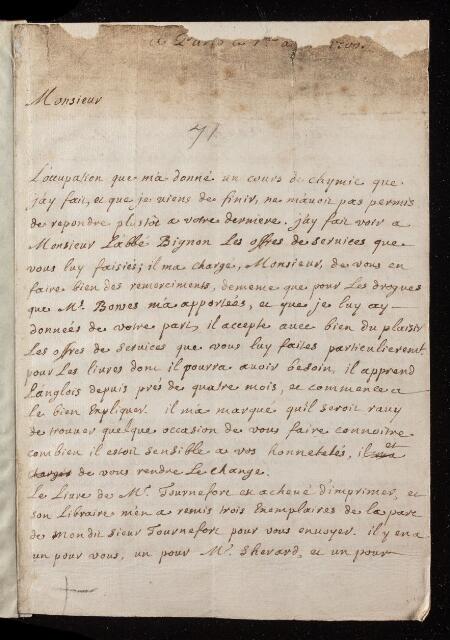 de Paris ce
Monsieur
71
L'occupation que m'a donné un cours de chymie que
j'ay fait, et que je viens de finir, ne m'avoit pas permis
de repondre plustôt a votre derniere. j'ay fait voir a
Monsieur L'abbé Bignon Les offres de services que
vous luy faisiés; il m'a chargé, Monsieur, de vous en
faire bien des remerciments, de meme que pour Les drogues
que Mr. Bonses m'a apporteés, et que je luy ay
donneés de votre part, il accepte avec bien du plaisir
Les offres de services que vous luy faites particulierement
pour Les livres dont il pourra avoir besoin, il apprend
L'anglois depuis prés de quatre mois, et commence a
le bien Expliquer. il m'a marqué qu'il seroit ravy
de trouver quelque occasion de vous faire connoitre
combien il estoit sensible a vos honnetetés, et
de vous rendre Le change.
Le Livre de Mr. Tournefort est achevé d'imprimer, et
son Libraire m'en a remis trois Exemplaires de la part
de mondit sieur Tournefort pour vous envoyer. il y en a
un pour vous, un pour Mr. Sherard, et un pour